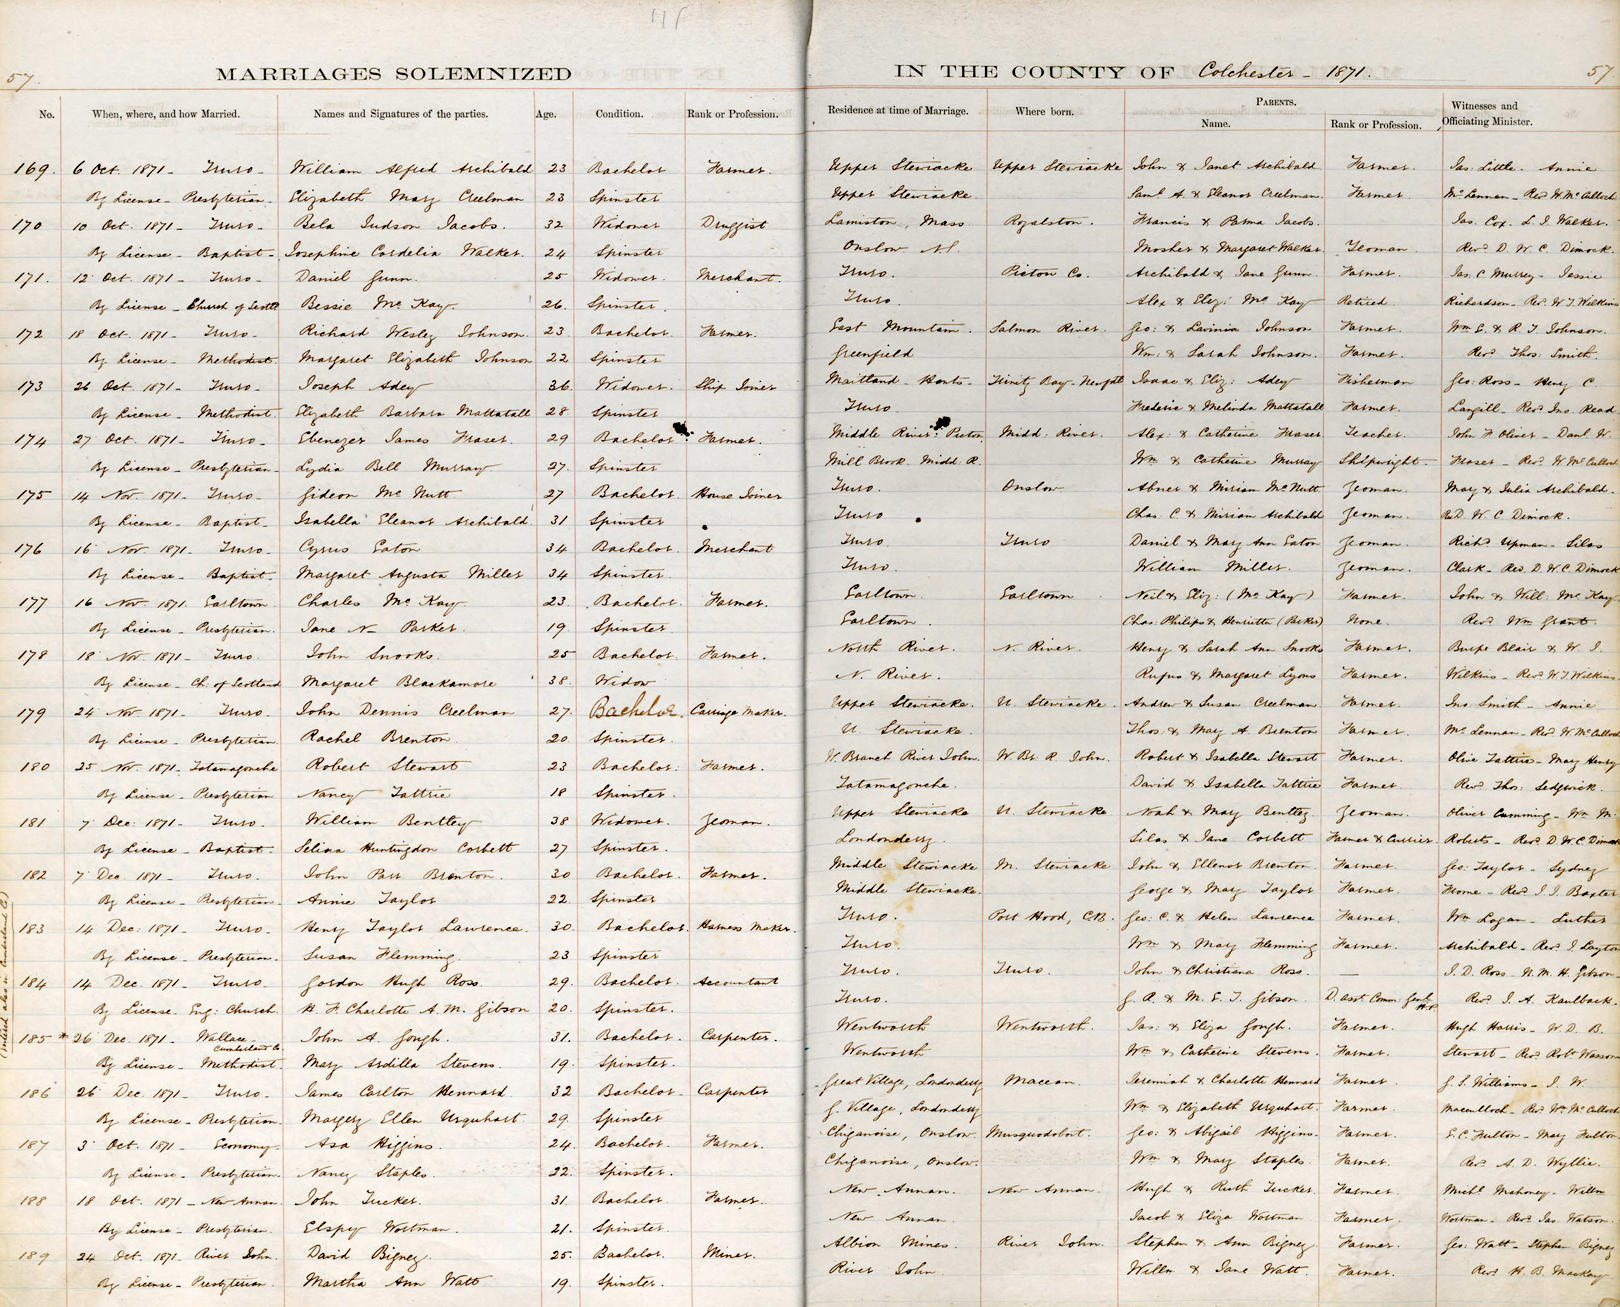 118
57. MARRIAGES SOLEMNIZED IN THE COUNTY OF Colchester - 1871. 57.
No. When, where, and how Married. Names and Signatures of the parties. Age. Condition. Rank or Profession. Residence at time of Marriage. Where born. PARENTS. Name. Rank or Profession. Witnesses and Officiating Minister.
169. 6 Oct. 1871 - Truro - William Alfred Archibald 23 Bachelor Farmer. Upper Stewiacke Upper Stewiacke John & Janet Archibald Farmer. Jas: Little. Annie
By License - Presbyterian - Elizabeth Mary Creelman 23 Spinster Upper Stewiacke. Saml. A. & Eleanor Creelman. Farmer. McLennan - Revd. W. McCulloch
170 10 Oct. 1871 - Truro - Bela Judson Jacobs. 32 Widower Druggist Mass Royalston. Francis & Jacobs. Jas. Cox. L. J. Walker.
By License - Baptist - Josephine Cordelia Walker. 24 Spinster Onslow N.S. Mosher & Margaret Walker. Yeoman. Revd. D. W. C. Dimock.
171. 12 Oct. 1871 - Truro - Daniel Gunn. 25 Widower. Merchant. Truro. Pictou Co. Archibald & Jane Gunn. Farmer. Jas. C Murrey - Jessie
By License - Church of Scotld. Bessie McKay. 26. Spinster. Truro. Alex & Eliz: McKay Retired. Richardson - Rev. W. T. Wilkins
172 18 Oct. 1871 - Truro. Richard Wesley Johnson. 23 Bachelor. Farmer. East Mountain. Salmon River. Geo: & Lavinia Johnson Farmer. Wm. E. & R. T. Johnson.
By License - Methodist. Margaret Elizabeth Johnson 22 Spinster Greenfield Wm: & Sarah Johnson. Farmer. Revd. Thos: Smith.
173 26 Oct. 1871 - Truro - Joseph Adey 36. Widower. Ship Joiner Maitland - Hants - Trinity Bay - Newfdld Isaac & Eliz: Adey Fisherman Geo: Ross - Henry C.
By License - Methodist. Elizabeth Barbara Mattatall 28 Spinster Truro. Frederic & Melinda Mattatall Farmer. Langill - Revd. Jno. Read
174 27 Oct. 1871 - Truro - Ebenezer James Fraser. 29 Bachelor Farmer. Middle River: Pictou Midd: River. Alex: & Catherine Fraser Teacher. John F. Oliver - Danl. W.
By License - Presbyterian - Lydia Bell Murray 27. Spinster. Mill Brook. Midd. R. Wm & Catherine Murray Shipwright. Fraser - Revd. W McCulloch
175 14 Nov. 1871 - Truro - Gideon McNutt 27 Bachelor. House Joiner Truro. Onslow Abner & Miriam McNutt Yeoman. Mary & Julia Archibald.
By License - Baptist - Isabella Eleanor Archibald. 31 Spinster Truro Chas. C & Miriam Archibald Yeoman. Revd. W. C Dimock.
176 16 Nov. 1871 - Truro - Cyrus Eaton 34 Bachelor. Merchant Truro. Truro Daniel & Mary Ann Eaton Yeoman. Richd. Upman - Silas
By License - Baptist - Margaret Augusta Miller 34 Spinster. Truro. William Miller. Yeoman. Clark - Rev. D. W. C. Dimock
177 16 Nov. 1871. Earltown. Charles McKay 23. Bachelor. Farmer. Earltown. Earltown Neil & Eliz: (McKay) Farmer. John & Will: McKay
By License - Presbyterian. Jane N- Parker. 19. Spinster. Earltown. Chas. Philips & Henrietta (Parker) None. Revd. Wm Grant.
178 18 Nov. 1871 - Truro. John Snooks. 25 Bachelor. Farmer. North River. N. River. Henry & Sarah Ann Snooks Farmer. Burpe Blair & W. J.
By License - Ch: of Scotland Margaret Blackamore 38 Widow N. River. Rufus & Margaret Lyons Farmer. Wilkins - Revd. W. T. Wilkins
179 24 Nov. 1871 - Truro. John Dennis Creelman 27. Bachelor. Carriage Maker. Upper Stewiacke. U. Stewiacke. Andrew & Susan Creelman Farmer. Jno. Smith - Annie
By License - Presbyterian. Rachel Brenton. 20 Spinster. U. Stewiacke. Thos: & Mary A. Brenton Farmer. McLennan - Revd. W. McCulloch
180 25 Nov. 1871 - Tatamagouche Robert Stewart 23 Bachelor. Farmer. W. Branch River John. W. Br. R. John. Robert & Isabella Stewart Farmer. Olive Tattrie - Mary Henry
By License - Presbyterian Nancy Tattrie 18 Spinster. Tatamagouche. David & Isabella Tattrie Farmer. Revd. Thos: Sedgwick.
181 7 Dec. 1871 - Truro. William Bentley 38 Widower Yeoman. Upper Stewiacke U. Stewiacke Noah & Mary Bentley. Yeoman. Oliver Cumming - Wm M.
By License - Baptist. Selina Huntingdon Corbett 27 Spinster. Londonderry. Silas & Jane Corbett Farmer & Currier Roberts - Revd. D. W. C Dimock
182 7 Dec. 1871 - Truro. John Parr Brenton. 30 Bachelor. Farmer. Middle Stewiacke M. Stewiacke John & Ellenor Brenton Farmer. Geo: Taylor - Sydney
By License - Presbyterian - Annie Taylor 22. Spinster Middle Stewiacke. George & Mary Taylor Farmer. Frome - Revd. J. I. Baxter
183 14 Dec. 1871 - Truro. Henry Taylor Lawrence. 30. Bachelor. Harness Maker. Truro. Port Hood, C.B. Geo: C. & Helen Lawrence Farmer. Wm Logan - Luther
By License - Presbyterian. Susan Flemming. 23 Spinster Truro. Wm & Mary Flemming Farmer. Archibald - Rev. J Layton
184 14 Dec. 1871 - Truro. Gordon Hugh Ross. 29. Bachelor. Accountant Truro. Truro. John & Christiana Ross. — J. D. Ross - N. M. H. Gibson
By License. Eng: Church. H. F. Charlotte A. M. Gibson 20. Spinster. Truro. G. R. & M. E. T. Gibson. D. asst. Comm: Genl. H.P. Revd. J. A. Kaulback.
(entered also in Cumberland Co)
185 * 26 Dec. 1871 - Wallace Cumberland Co John A. Gough. 31. Bachelor Carpenter. Wentworth Wentworth. Jas: & Eliza Gough. Farmer. Hugh Harris - W. D. B.
By License - Methodist. Mary Ardilla Stevens. 19. Spinster. Wentworth Wm & Catherine Stevens. Farmer. Stewart - Revd. Robt Wasson
186 26 Dec. 1871 - Truro. James Carlton Hennard 32 Bachelor Carpenter Great Village, Londonderry Maccan. Jeremiah & Charlotte Hennard Farmer. G. S. Williams - J. W.
By License - Presbyterian. Margery Ellen Urquhart. 29. Spinster G. Village, Londonderry Wm & Elizabeth Urquhart. Farmer. Macculloch - Rev. Wm McCulloch
187 3 Oct. 1871 - Economy. Asa Higgins. 24. Bachelor. Farmer. Chiganoise, Onslow. Musquodobit. Geo: & Abigail Higgins. Farmer. E. C. Fulton - Mary Fulton
By License - Presbyterian. Nancy Staples. 22. Spinster. Chiganoise, Onslow. Wm & Mary Staples. Farmer. Rev. A. D. Wyllie.
188 18 Oct. 1871 - New Annan. John Tucker. 31. Bachelor. Farmer. New Annan. New Annan. Hugh & Ruth Tucker. Farmer. Michl. Mahoney. Willm
By License - Presbyterian. Elspy Wortman. 21. Spinster. New Annan. Jacob & Eliza Wortman Farmer. Wortman - Revd. Jas. Watson.
189 24 Oct. 1871. River John. David Bigney. 25. Bachelor. Miner. Albion Mines. River John. Stephen & Ann Bigney Farmer. Geo: Watt - Stephen Bigney
By License - Presbyterian. Martha Ann Watt 19. Spinster. River John Willm & Jane Watt. Farmer. Revd. H. B. Mackay